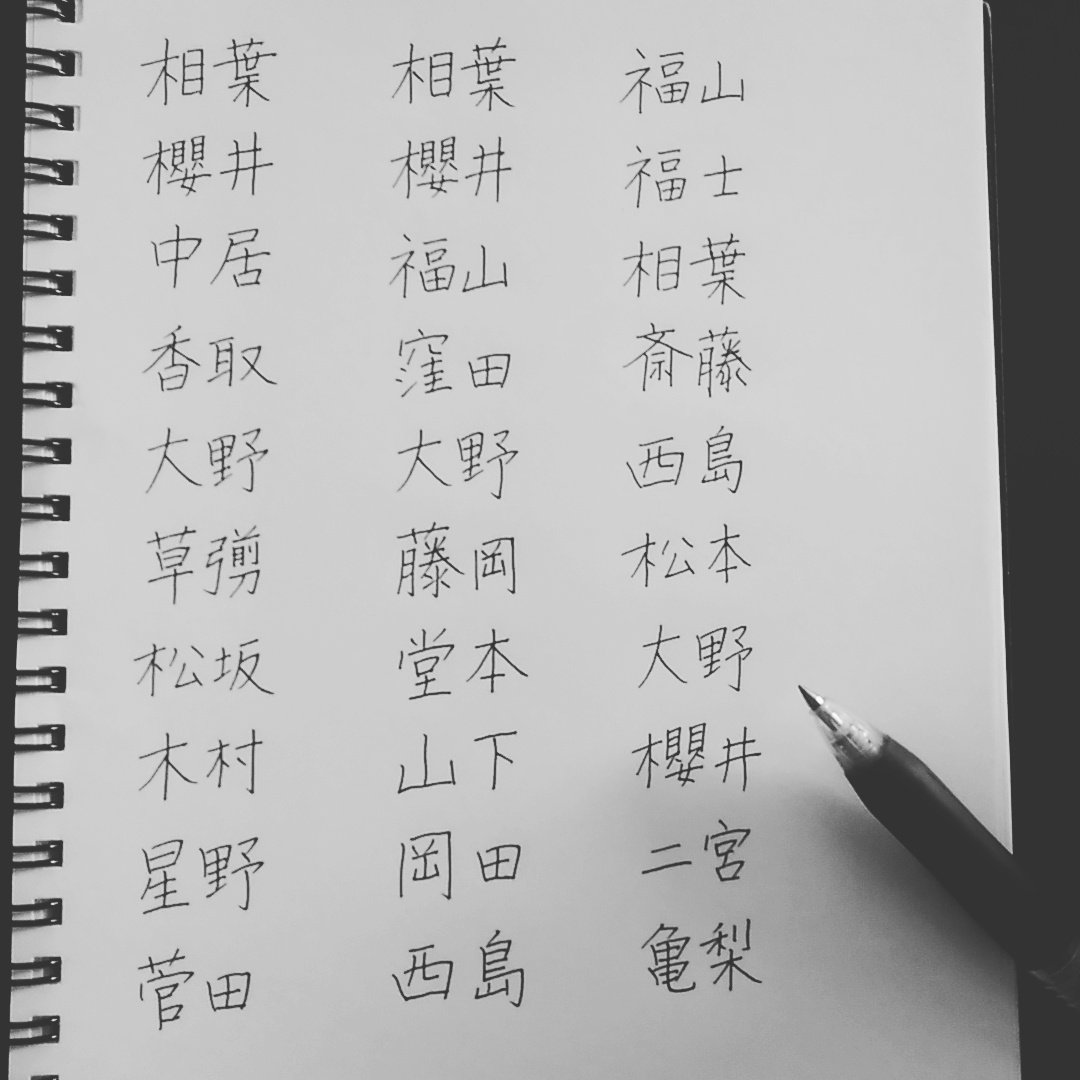 相葉 相葉 福山
櫻井 櫻井 福士
中居 福山 相葉
香取 窪田 斎藤
大野 大野 西島
草彅 藤岡 松本
松坂 堂本 大野
木村 山下 櫻井
星野 岡田 二宮
菅田 西島 亀梨